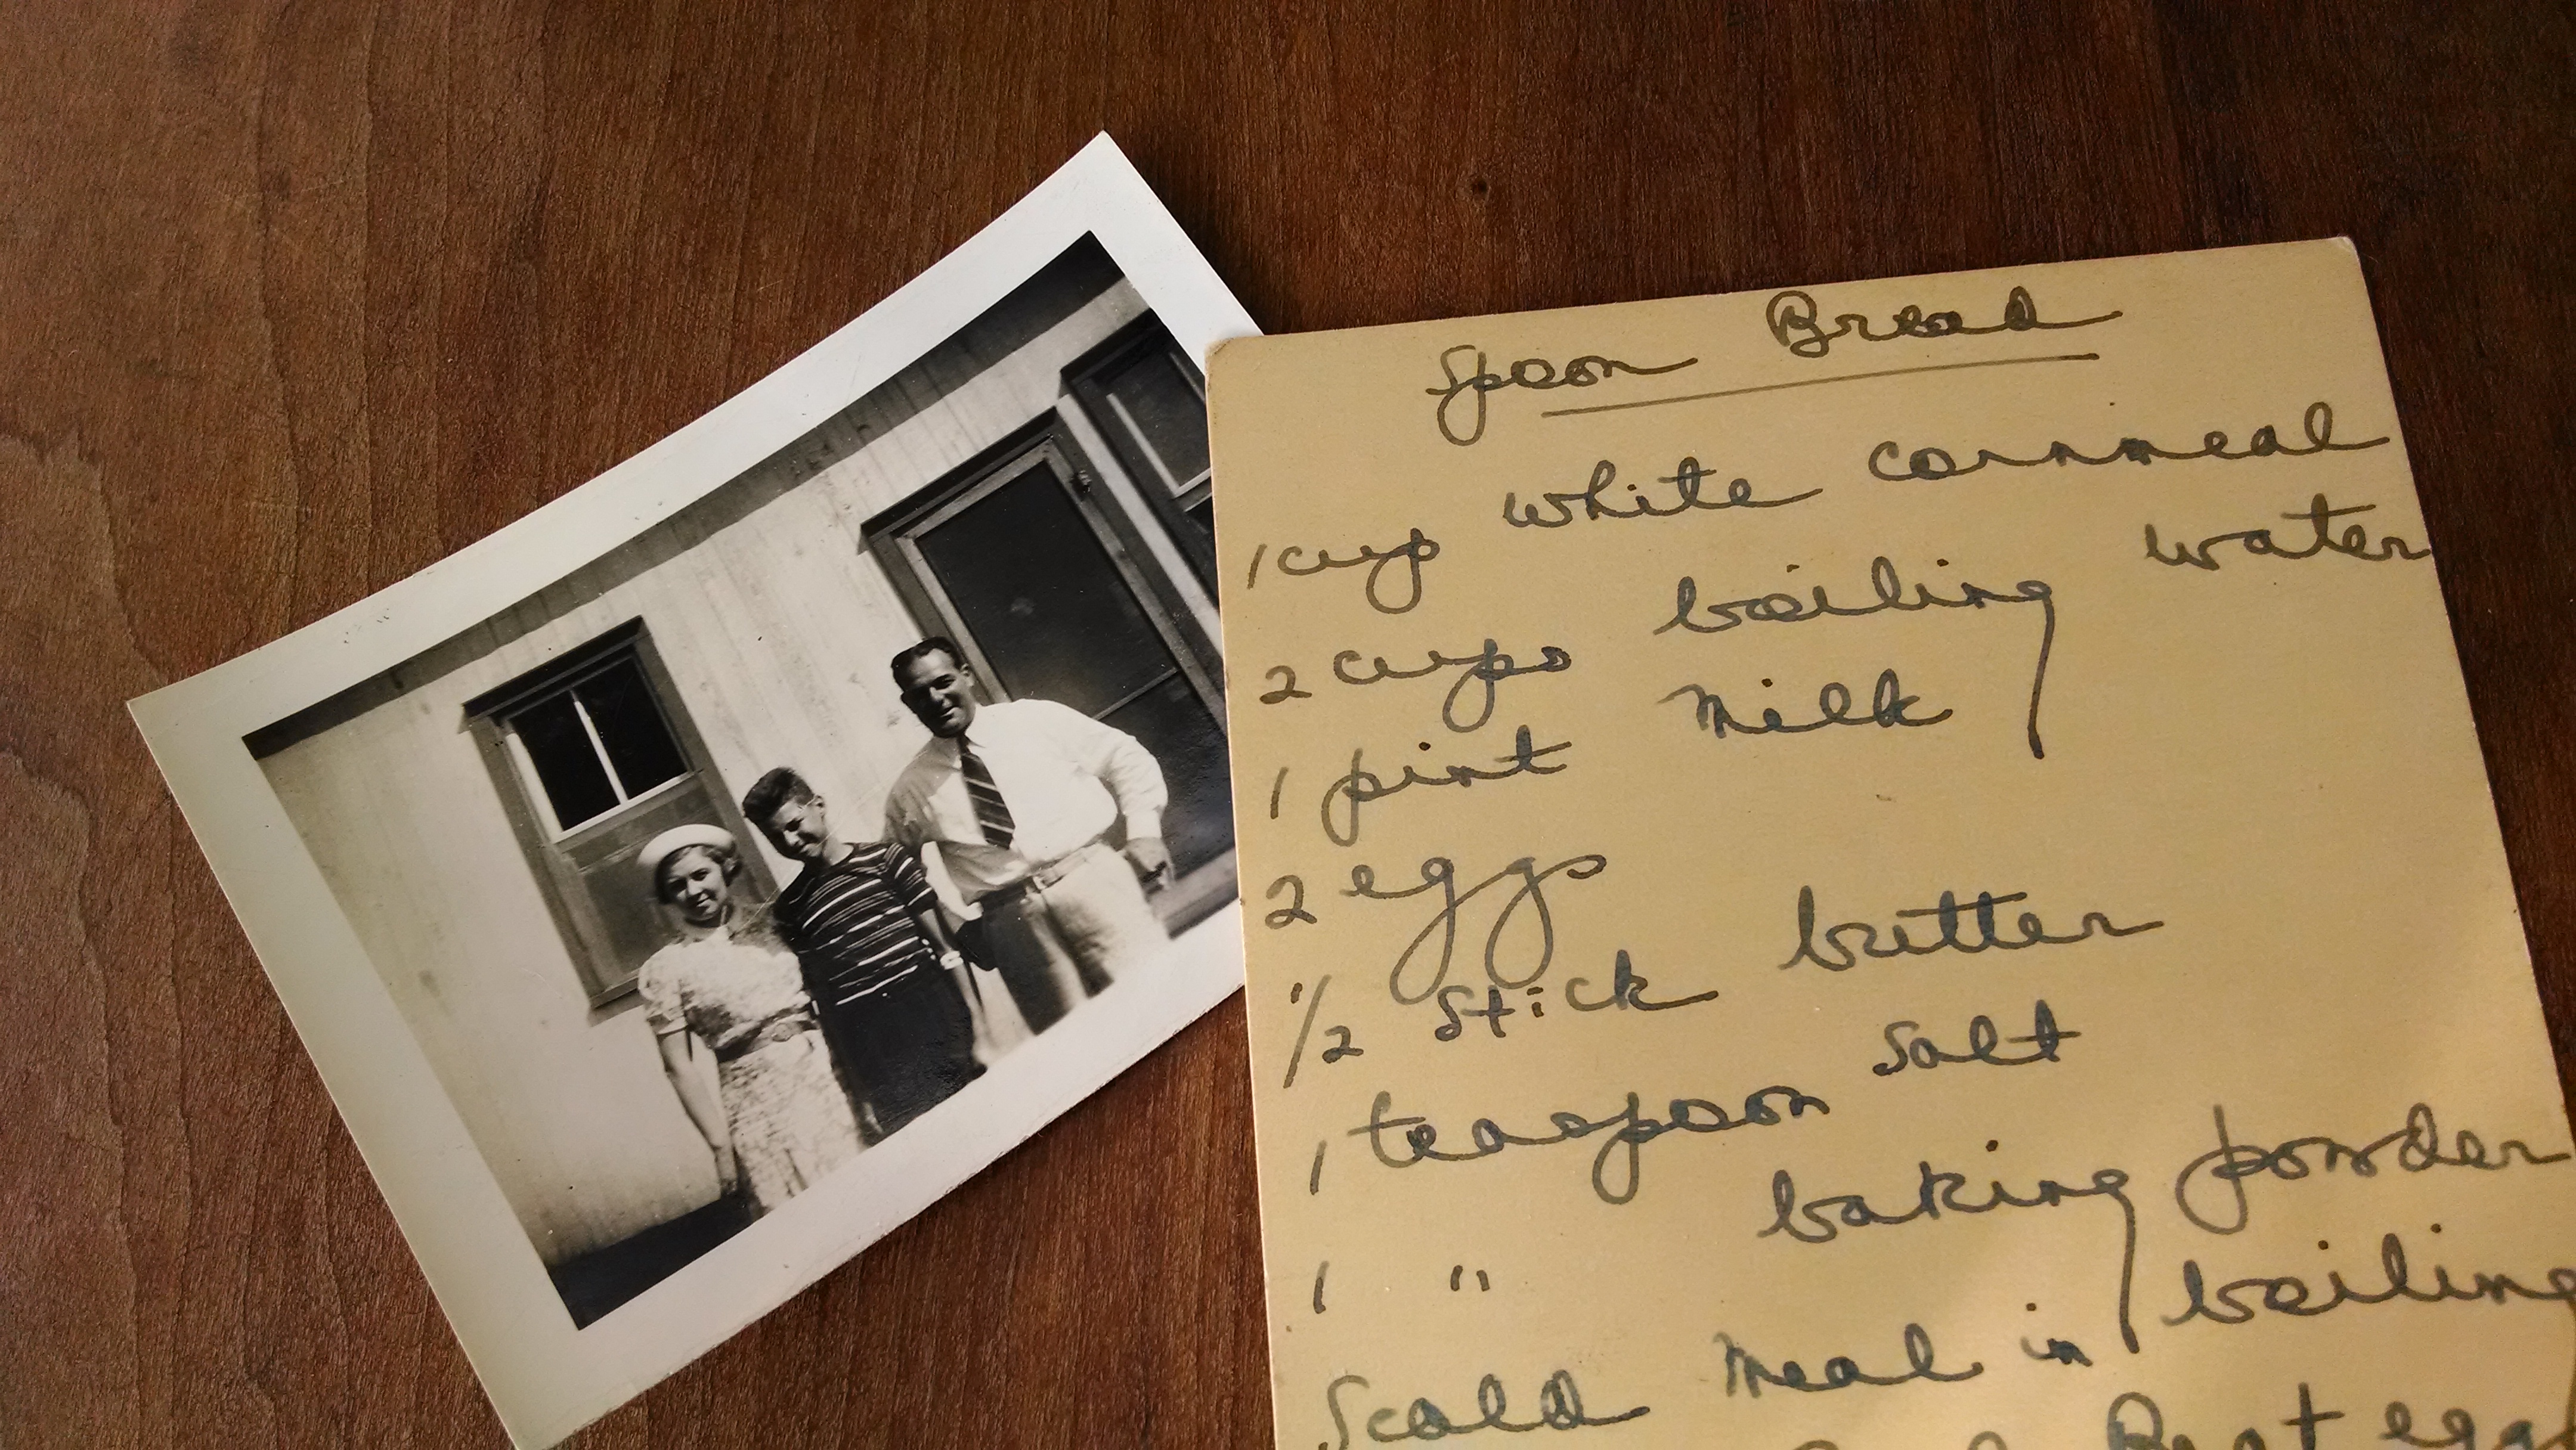 Spoon Bread
1 cup white cornmeal
2 cups boiling water
1 pint milk
2 eggs
1/2 stick butter
1 teaspoon salt
1 " baking powder
Scald meal in boiling
Beat egg